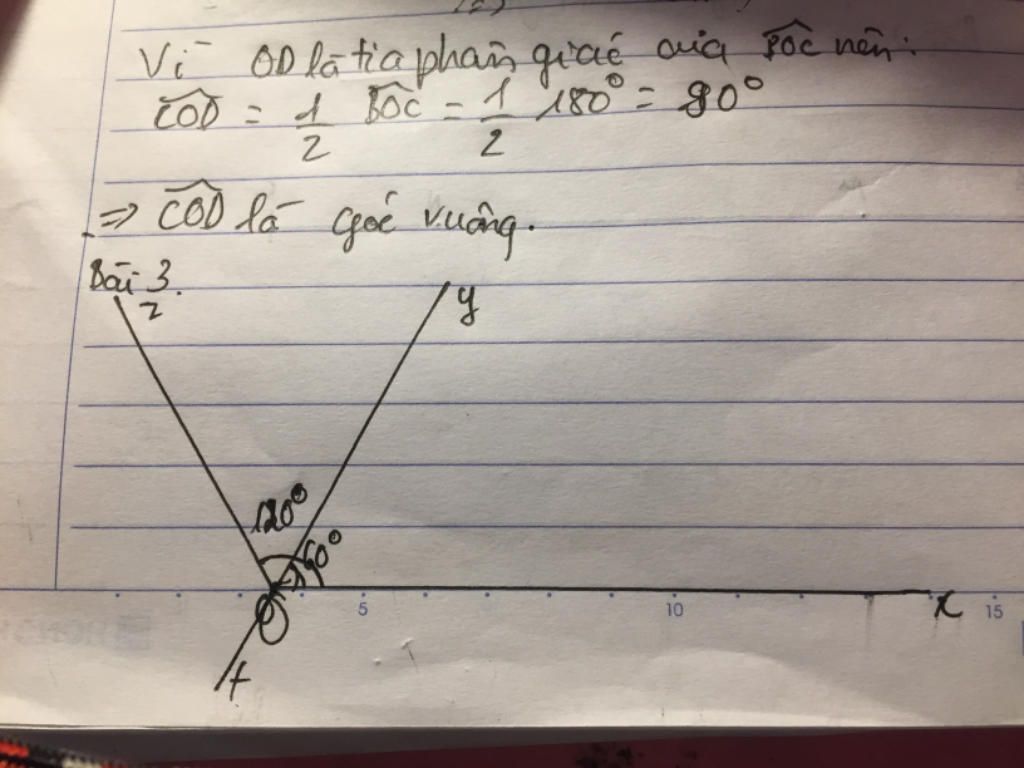 Vì OD là tia phân giác của BOC nên:
COD = 1/2 BOC = 1/2 180° = 90°
=> COD là góc vuông.
Bài 3.
z
y
120°
60°
O
x
5
10
15
t